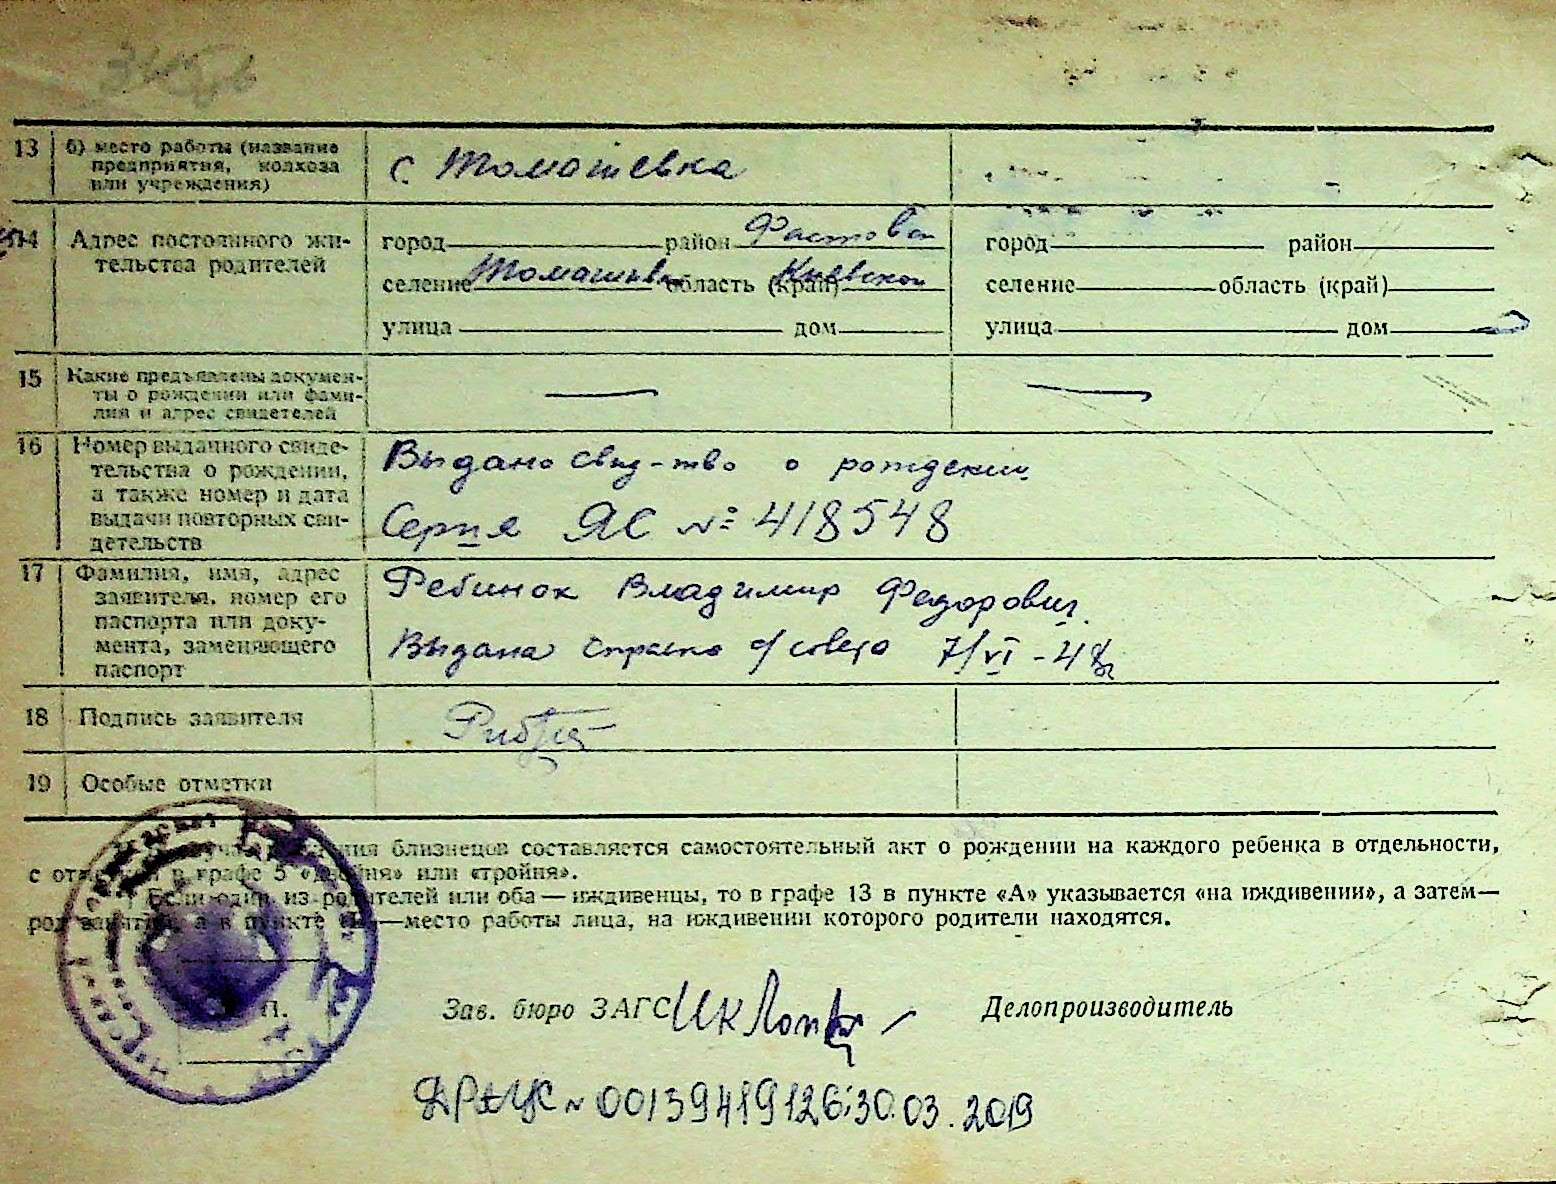 13 б) место работы (название
предприятия, колхоза
или учреждения)
с. Томашевка
14 Адрес постоянного жи-
тельства родителей
город район Фастовск
селение Томашевка область (край) Киевской
улица дом
город район
селение область (край)
улица дом
15 Какие предъявлены докумен-
ты о рождении или фами-
лия и адрес свидетелей
16 Номер выданного свиде-
тельства о рождении,
а также номер и дата
выдачи повторных сви-
детельств
Выдано свид-тво о рождении
Серия ЯС № 418548
17 Фамилия, имя, адрес
заявителя, номер его
паспорта или доку-
мента, заменяющего
паспорт
Ребинок Владимир Федорович
Выдана справка с/совета 7/VI-48г
18 Подпись заявителя
19 Особые отметки
близнецов составляется самостоятельный акт о рождении на каждого ребенка в отдельности,
с отметкой в графе 5 «двойня» или «тройня».
Если один из родителей или оба — иждивенцы, то в графе 13 в пункте «А» указывается «на иждивении», а затем—
род занятий, а в пункте —место работы лица, на иждивении которого родители находятся.
П.
Зав. бюро ЗАГС
Делопроизводитель
ДРАЦС № 00139419126; 30.03.2019